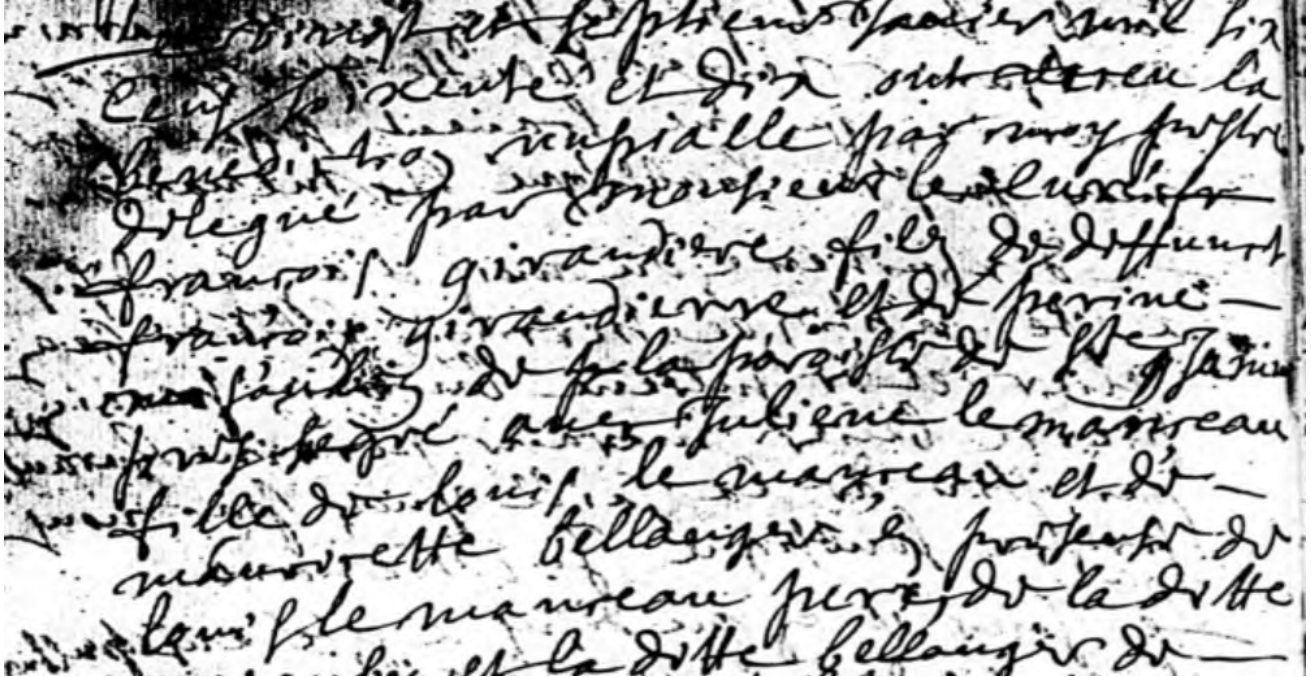 Le vingt et septiesme Janvier mil six
cens soixente et dix ont receu la
benediction nupialle par moy prestre
délegué par monsieur le curé
francois girandiere fils de deffunct
francois girandierre et de perine
de la paroisse de ste Jame
pres segré avec Juliene le manceau
fille de louis le manceau et de
mauricette bellanger en presense de
louis le manceau pere de la ditte
et la ditte bellanger de